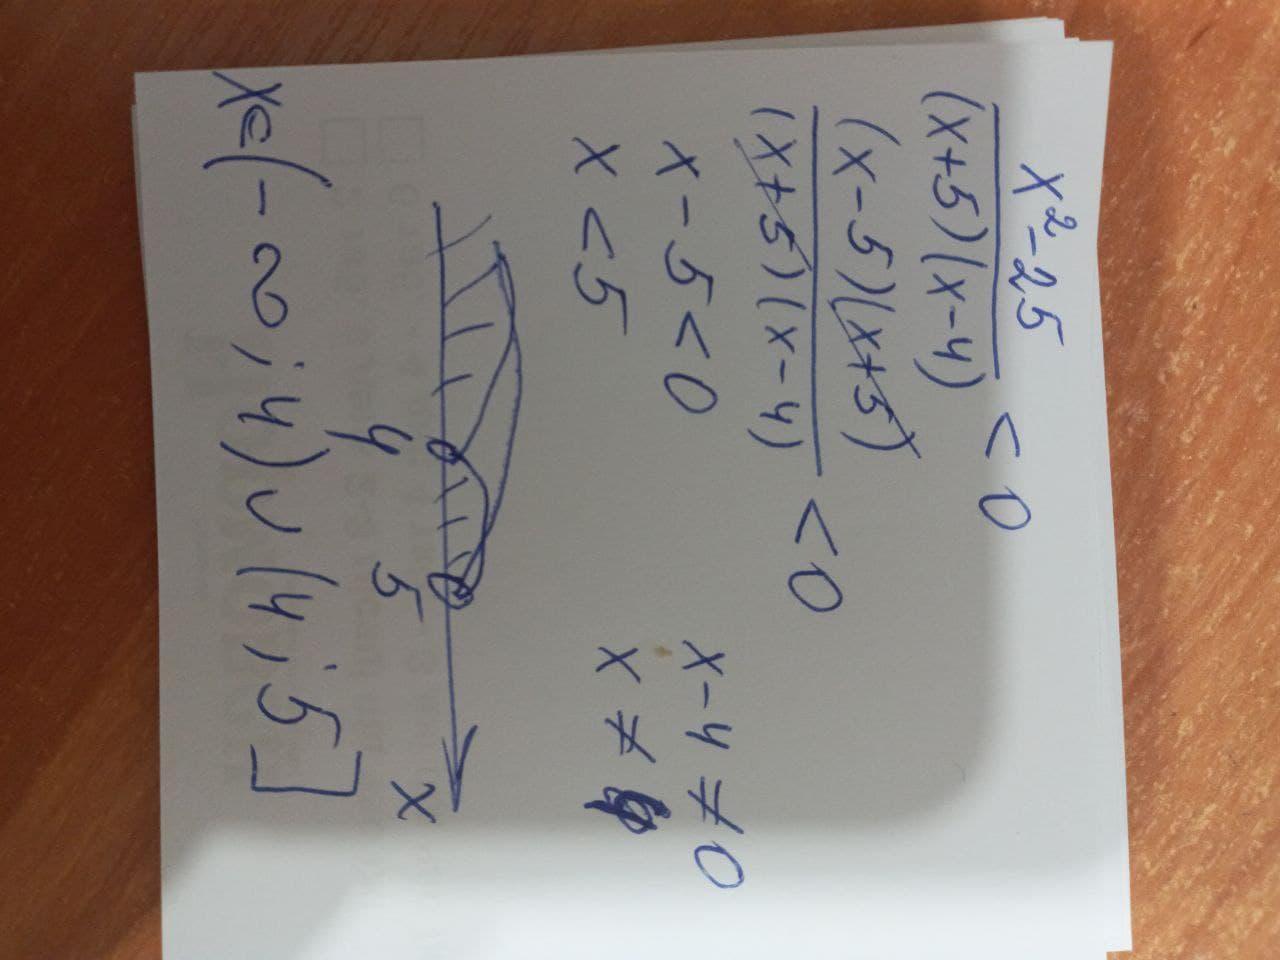 x²-25
(x+5)(x-4) < 0
(x-5)(x+5)
(x+5)(x-4) < 0
x-5<0 x-4≠0
x<5 x≠4
4 5 x
x∈(-∞;4)∪(4;5]